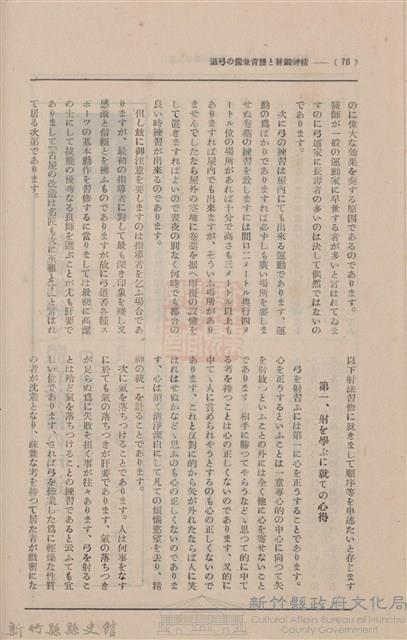 道弓の備兼育體と練鍛神精 —— ( 78 )
のに偉大な効果を奏する原因であるのであります。
醫師が一般の運動家に早世する者が多いと言はれてゐま
すのに弓道家に長壽者の多いのは決して偶然ではないの
であります。
次に弓の練習は屋内にても出來る運動であります、運
動の爲ばかりでありますれば必ずしも廣い場所を要しま
せぬ卷藁の練習を致しますには間口二メートル奥行四メ
ートル位の場所があれば十分で高さも三メートル以上も
ありますれば屋内でも出來ますが、そういふ場所があり
ませんでしたなら屋外の空地に卷藁を据へ雨覆の設備を
して置きますればよいので晝夜の別なく何時でも都合の
良い時練習が出來るのであります。
但し玆に御注意を要しますのは指導者を乞ふ場合であ
りますが、最初の指導者に對して最も深き印象を殘し又
感激と信頼とを拂ふものでありますが故に弓道否各種ス
ポーツの基本動作を習修するに當りましては最初に高潔
の士にして技能の優秀なる良師を選ぶことが尤も肝要で
ありまして『古屋の改造は名匠も大に至難とす』と言はれ
て居る次第であります。
以下射法習修に就きまして順序等を申述たいと存じます
第一、射を學ぶに就ての心得
弓を射習ふには第一に心を正うすることであります。
心を正うするといふことは一意專心的の中心に向つて矢
を射放つといふことの外には全く他に心を寄せないこと
であります 相手に勝つてやらうなどゝ思つて的に中て
る考を持つことは心の正しくないのであります、又的に
中てゝ人に賞められやうとするのも心の正しくないので
あります、これと反對に的から矢が外れたならば人に笑
はれはせぬかなどゝ思ふのも心の正しくないのでありま
す、心は須く清淨潔白にして凡ての煩惱慾望を去り、精
神の統一を計ることであります。
次に氣を落ちつけることであります。人は何事をなす
に於ても氣の落ちつきが肝要であります、氣の落ちつき
が足らぬ爲に失敗を招く事が往々あります、弓を射るこ
とは殆ど氣を落ちつけることの練習であると云ふても宜
しい位であります、されば弓を修業した爲に輕燥な性質
の者が沈着となり、疎雜な考を持つて居た者が緻密にな
新竹縣縣史館
新竹縣政府文化局
Cultural Affairs Bureau of Hsinchu County Government